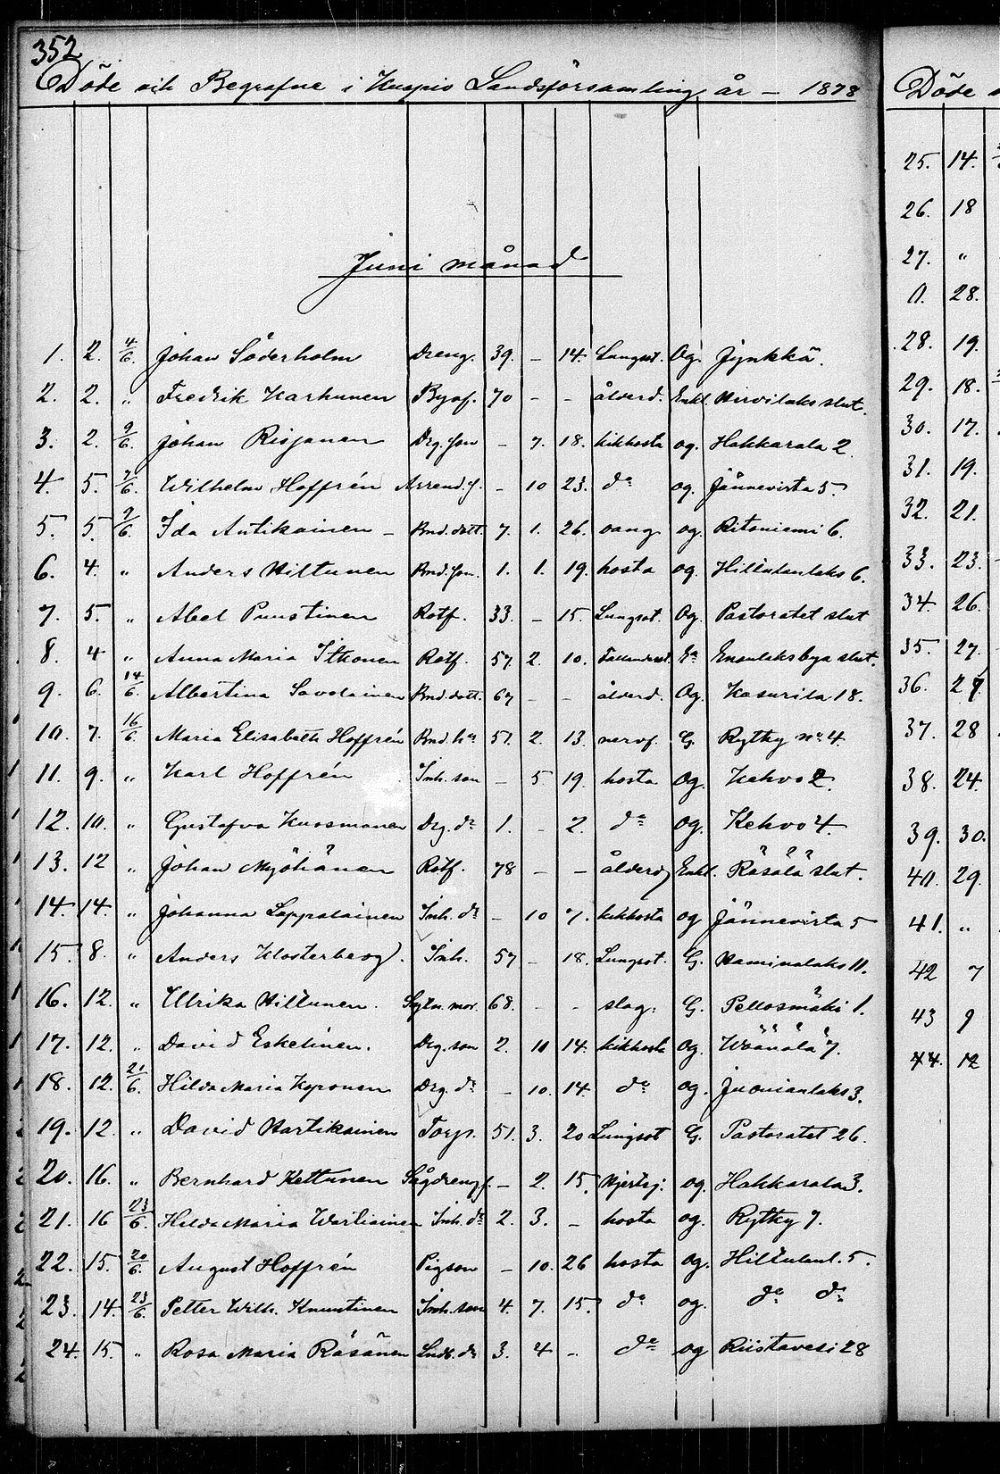 352
Döde och Begrafne i Kuopio Landsförsamling år – 1878
Juni månad
1. 2. 4/6. Johan Söderholm Dreng. 39. – 14. Lungsot. Og. Jynkkä.
2. 2. " Fredrik Karhunen Bysf. 70 – – ålderd. Enkl. Hirvilaks slut.
3. 2. 9/6. Johan Risjanen Drg. son – 7. 18. kikhosta og. Hakkarala 2.
4. 5. 7/6. Wilhelm Hoffrén Arrend. s. – 10 23. do og. Jännevirta 5.
5. 5. 9/6. Ida Antikainen – Bnd. dott. 7. 1. 26. og. Ritoniemi 6.
6. 4. " Anders Hiltunen Bnd. son. 1. 1. 19. hosta og. Hiltulanlaks 6.
7. 5. " Abel Puustinen Rotf. 33. – 15. Lungsot. Og. Pastoratet slut
8. 4 " Anna Maria Itkonen Rotf. 57. 2. 10. Fallandesot. Ea slut.
9. 6. 14/6. Albertina Savolainen Bnd. dott. 67 – – ålderd. Og. Kasurila 18.
10. 7. 16/6. Maria Elisabeth Hoffrén Bnd. ha 57. 2. 13. nervf. G. Rytky no 4
11. 9. " Karl Hoffrén Inh. son – 5 19. hosta og. Kehvo 2.
12. 10. " Gustafva Kuosmanen Drg. dr 1. – 2. do og. Kehvo 4.
13. 12 " Johan Myöhänen Rotf. 78 – – ålderd Enkl. Räsälä slut.
14. 14. " Johanna Lappalainen Inh. dr – 10 7. kikhosta og Jännevirta 5
15. 8. " Anders Klosterberg. Inh. 57 – 18. Lungsot. G. Haminalaks 11.
16. 12. " Ulrika Hiltunen. Sytn. mor. 68. – – slag. G. Pellosmäki 1.
17. 12. " David Eskelinen. Drg. son 2. 11 14. kikhosta og. Wäänälä 7.
18. 12. 21/6. Hilda Maria Kyronen Drg. dr – 10. 14. do og. Juonianlaks 3.
19. 12. " David Hartikainen Torp. 51. 3. 20 Lungsot G. Pastoratet 26.
20. 16. " Bernhard Kettunen Sågdreng s. – 2. 15. Hjertsj. og. Hakkarala 3.
21. 16 23/6. Hilda Maria Wartiainen Inh. dr 2. 3. – hosta og. Rytky 7.
22. 15. 20/6. August Hoffrén Pigson – 10. 26 hosta og. Hiltulanl. 5.
23. 14. 23/6. Petter Wilh. Knuutinen Inh. son 4. 7. 15. do og. do do
24. 15. " Rosa Maria Räsänen Lndb. dr 3. 4 – do og Riistavesi 28
Döde
25. 14.
26. 18
27. "
0. 28.
28. 19.
29. 18.
30. 17.
31. 19.
32. 21.
33. 23.
34. 26.
35. 27.
36. 27.
37. 28
38. 24.
39. 30.
40. 29.
41. "
42 7
43 9
44. 12